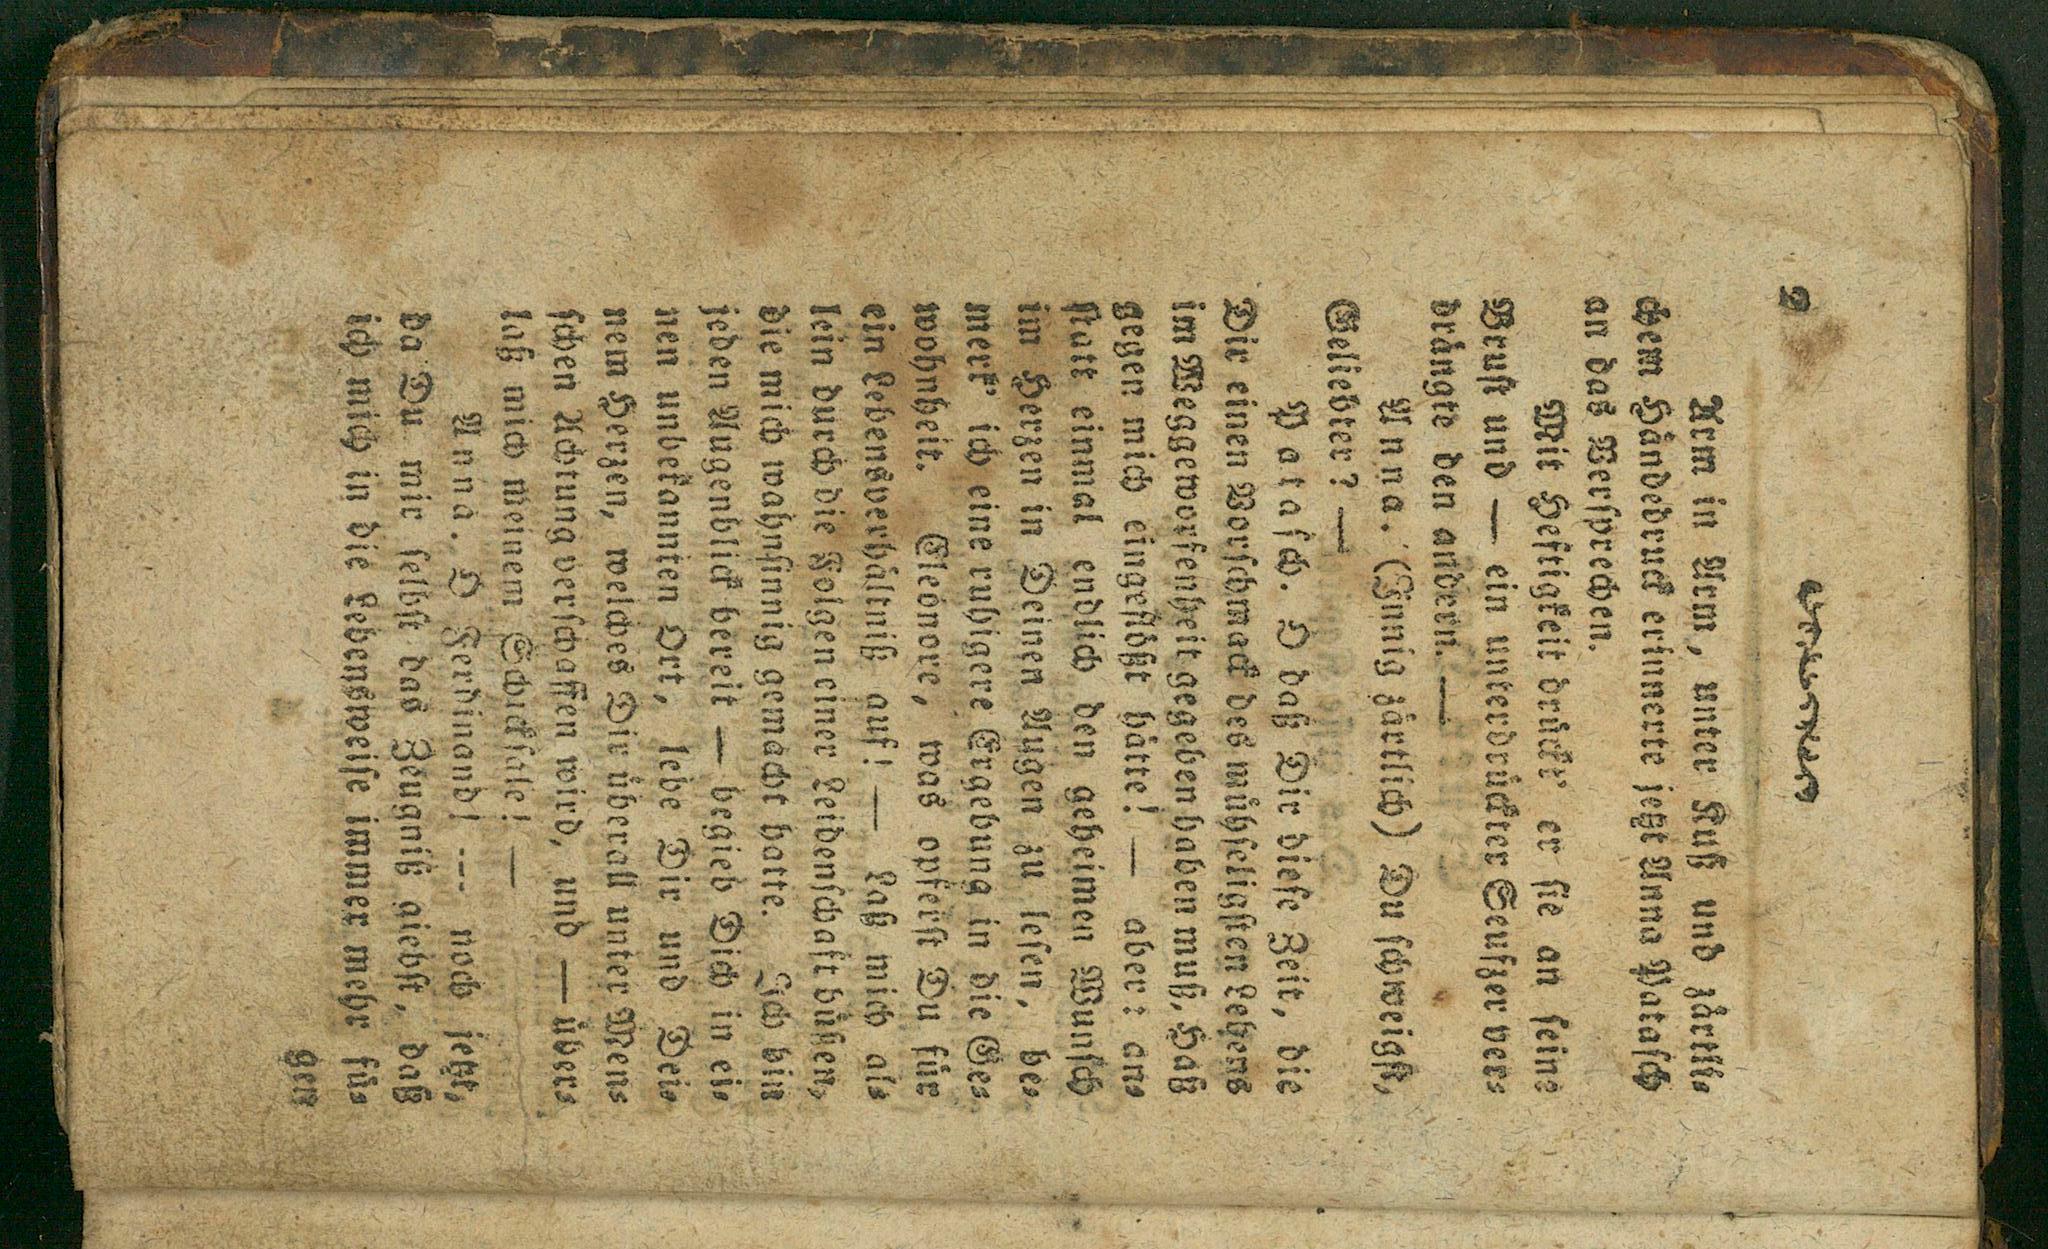 2
Arm in Arm, unter Kuß und zärtli⸗
chem Händedruck erinnerte jetzt Anna Patasch
an das Versprechen.
Mit Heftigkeit drückt' er sie an seine
Brust und — ein unterdrückter Seufzer ver⸗
drängte den andern. —
Anna. (Innig zärtlich) Du schweigst,
Geliebter? —
Patasch. O daß Dir diese Zeit, die
Dir einen Vorschmack des mühseligsten Lebens
im Weggeworfenheit gegeben haben muß, Haß
gegen mich eingeflößt hätte! — aber: an⸗
statt einmal endlich den geheimen Wunsch
im Herzen in Deinen Augen zu lesen, be⸗
merk' ich eine ruhigere Ergebung in die Ge⸗
wohnheit. Eleonore, was opferst Du für
ein Lebensverhältniß auf! — Laß mich al⸗
lein durch die Folgen einer Leidenschaft büßen,
die mich wahnsinnig gemacht hatte. Ich bin
jeden Augenblick bereit — begieb Dich in ei⸗
nen unbekannten Ort, lebe Dir und Dei⸗
nem Herzen, welches Dir überall unter Men⸗
schen Achtung verschaffen wird, und — über⸗
laß mich meinem Schicksale! —
Anna. O Ferdinand! --- noch jetzt,
da Du mir selbst das Zeugniß giebst, daß
ich mich in die Lebensweise immer mehr fü⸗
gen